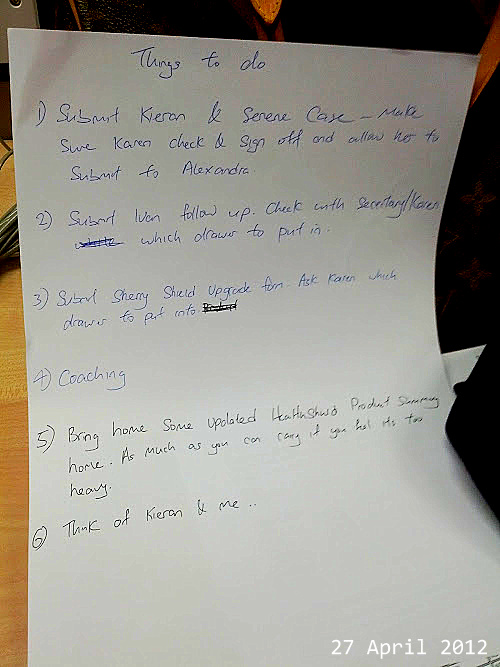 Things to do
1) Submit Kieran & Serene Case - Make
Sure Karen check & Sign off and allow her to
Submit to Alexandra.
2) Submit Ivan follow up. Check with Secretary/Karen
which drawer to put in.
3) Submit Sherry Shield Upgrade form. Ask Karen which
drawer to put into.
4) Coaching
5) Bring home Some Updated HealthShield Product Summary
home. As much as you can carry if you feel its too
heavy.
6) Think of Kieran & me ..
27 April 2012